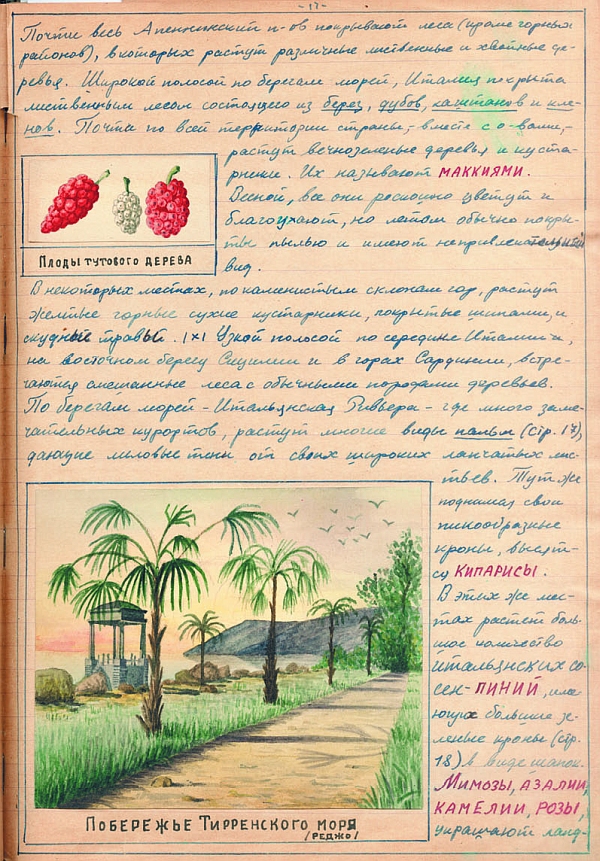 - 17 -
Почти весь Апеннинский п-ов покрывают леса (кроме горных
районов), в которых растут различные лиственные и хвойные де-
ревья. Широкой полосой по берегам морей, Италия покрыта
лиственным лесом состоящего из берез, дубов, каштанов и кле-
нов. Почти по всей территории страны,- вместе с о-вами,-
растут вечнозеленые деревья и куста-
рники. Их называют МАККИЯМИ.
Весной, все они роскошно цветут и
благоухают, но летом обычно покры-
ты пылью и имеют непривлекательный
вид.
ПЛОДЫ ТУТОВОГО ДЕРЕВА
В некоторых местах, по каменистым склонам гор, растут
желтые горные сухие кустарники, покрытые шипами, и
скудные травы. Узкой полосой по середине Италии и,
на восточном берегу Сицилии и в горах Сардинии, встре-
чаются смешанные леса с обычными породами деревьев.
По берегам морей - Итальянская Ривьера - где много заме-
чательных курортов, растут многие виды пальм (стр. 17),
дающие миловые тени от своих широких лапчатых лис-
тьев. Тут же
поднимая свои
пикообразные
кроны, высят-
ся КИПАРИСЫ.
В этих же мес-
тах растет боль-
шое количество
итальянских со-
сен- ПИНИЙ, име
ющих большие зе-
леные кроны (стр.
18) в виде шапок.
МИМОЗЫ, АЗАЛИИ,
КАМЕЛИИ, РОЗЫ,
украшают ланд-
ПОБЕРЕЖЬЕ ТИРРЕНСКОГО МОРЯ
/РЕДЖО/